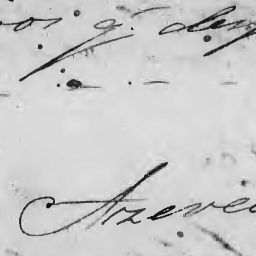 os q. dep
Azeve